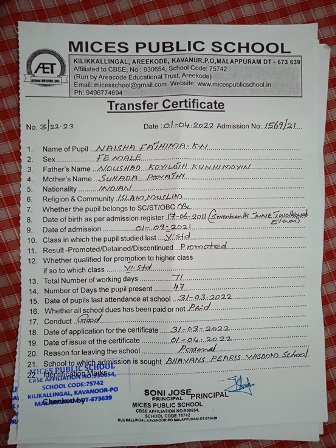 MICES PUBLIC SCHOOL
KILIKKALLINGAL, AREEKODE, KAVANUR.P.O, MALAPPURAM DT - 673 639
Affiliated to CBSE, No : 930654, School Code: 75742
(Run by Areacode Educational Trust, Areekode)
Email: micesschool@gmail.com Website: www.micespublicschool.in
Ph: 9496774694
AET
Transfer Certificate
No. 35/22-23 Date : 01-04-2022 Admission No: 1569/21
1. Name of Pupil NAISHA FATHIMA.KN
2. Sex FEMALE
3. Father's Name NOUSHAD KOYILOTH KUNHIMOYIN
4. Mother's Name SUHADA
5. Nationality INDIAN
6. Religion & Community ISLAM, MUSLIM
7. Whether the pupil belongs to SC/ST/OBC
8. Date of birth as per admission register 17-06-2011 (Seventeenth June Two Thousand Eleven)
9. Date of admission 01-09-2021
10. Class in which the pupil studied last V Std
11. Result -Promoted/Detained/Discontinued Promoted
12. Whether qualified for promotion to higher class
if so to which class VI Std
13. Total Number of working days 71
14. Number of Days the pupil present 47
15. Date of pupils last attendance at school 31-03-2022
16. Whether all school dues has been paid or not Paid
17. Conduct Good
18. Date of application for the certificate 31-03-2022
19. Date of issue of the certificate 01-04-2022
20. Reason for leaving the school
21. School to which admission is sought BHAVANS PEARLS WISDOM School
22. Identification Marks
MICES PUBLIC SCHOOL
CBSE AFFILIATION NO:930654,
SCHOOL CODE:75742
KILIKKALLINGAL, KAVANOOR-PO
MALAPPURAM-DT-673639
Checked by:
SONI JOSE
PRINCIPAL
PRINCIPAL
MICES PUBLIC SCHOOL
CBSE AFFILIATION NO:930654,
SCHOOL CODE:75742
KILIKKALLINGAL, KAVANOOR-PO